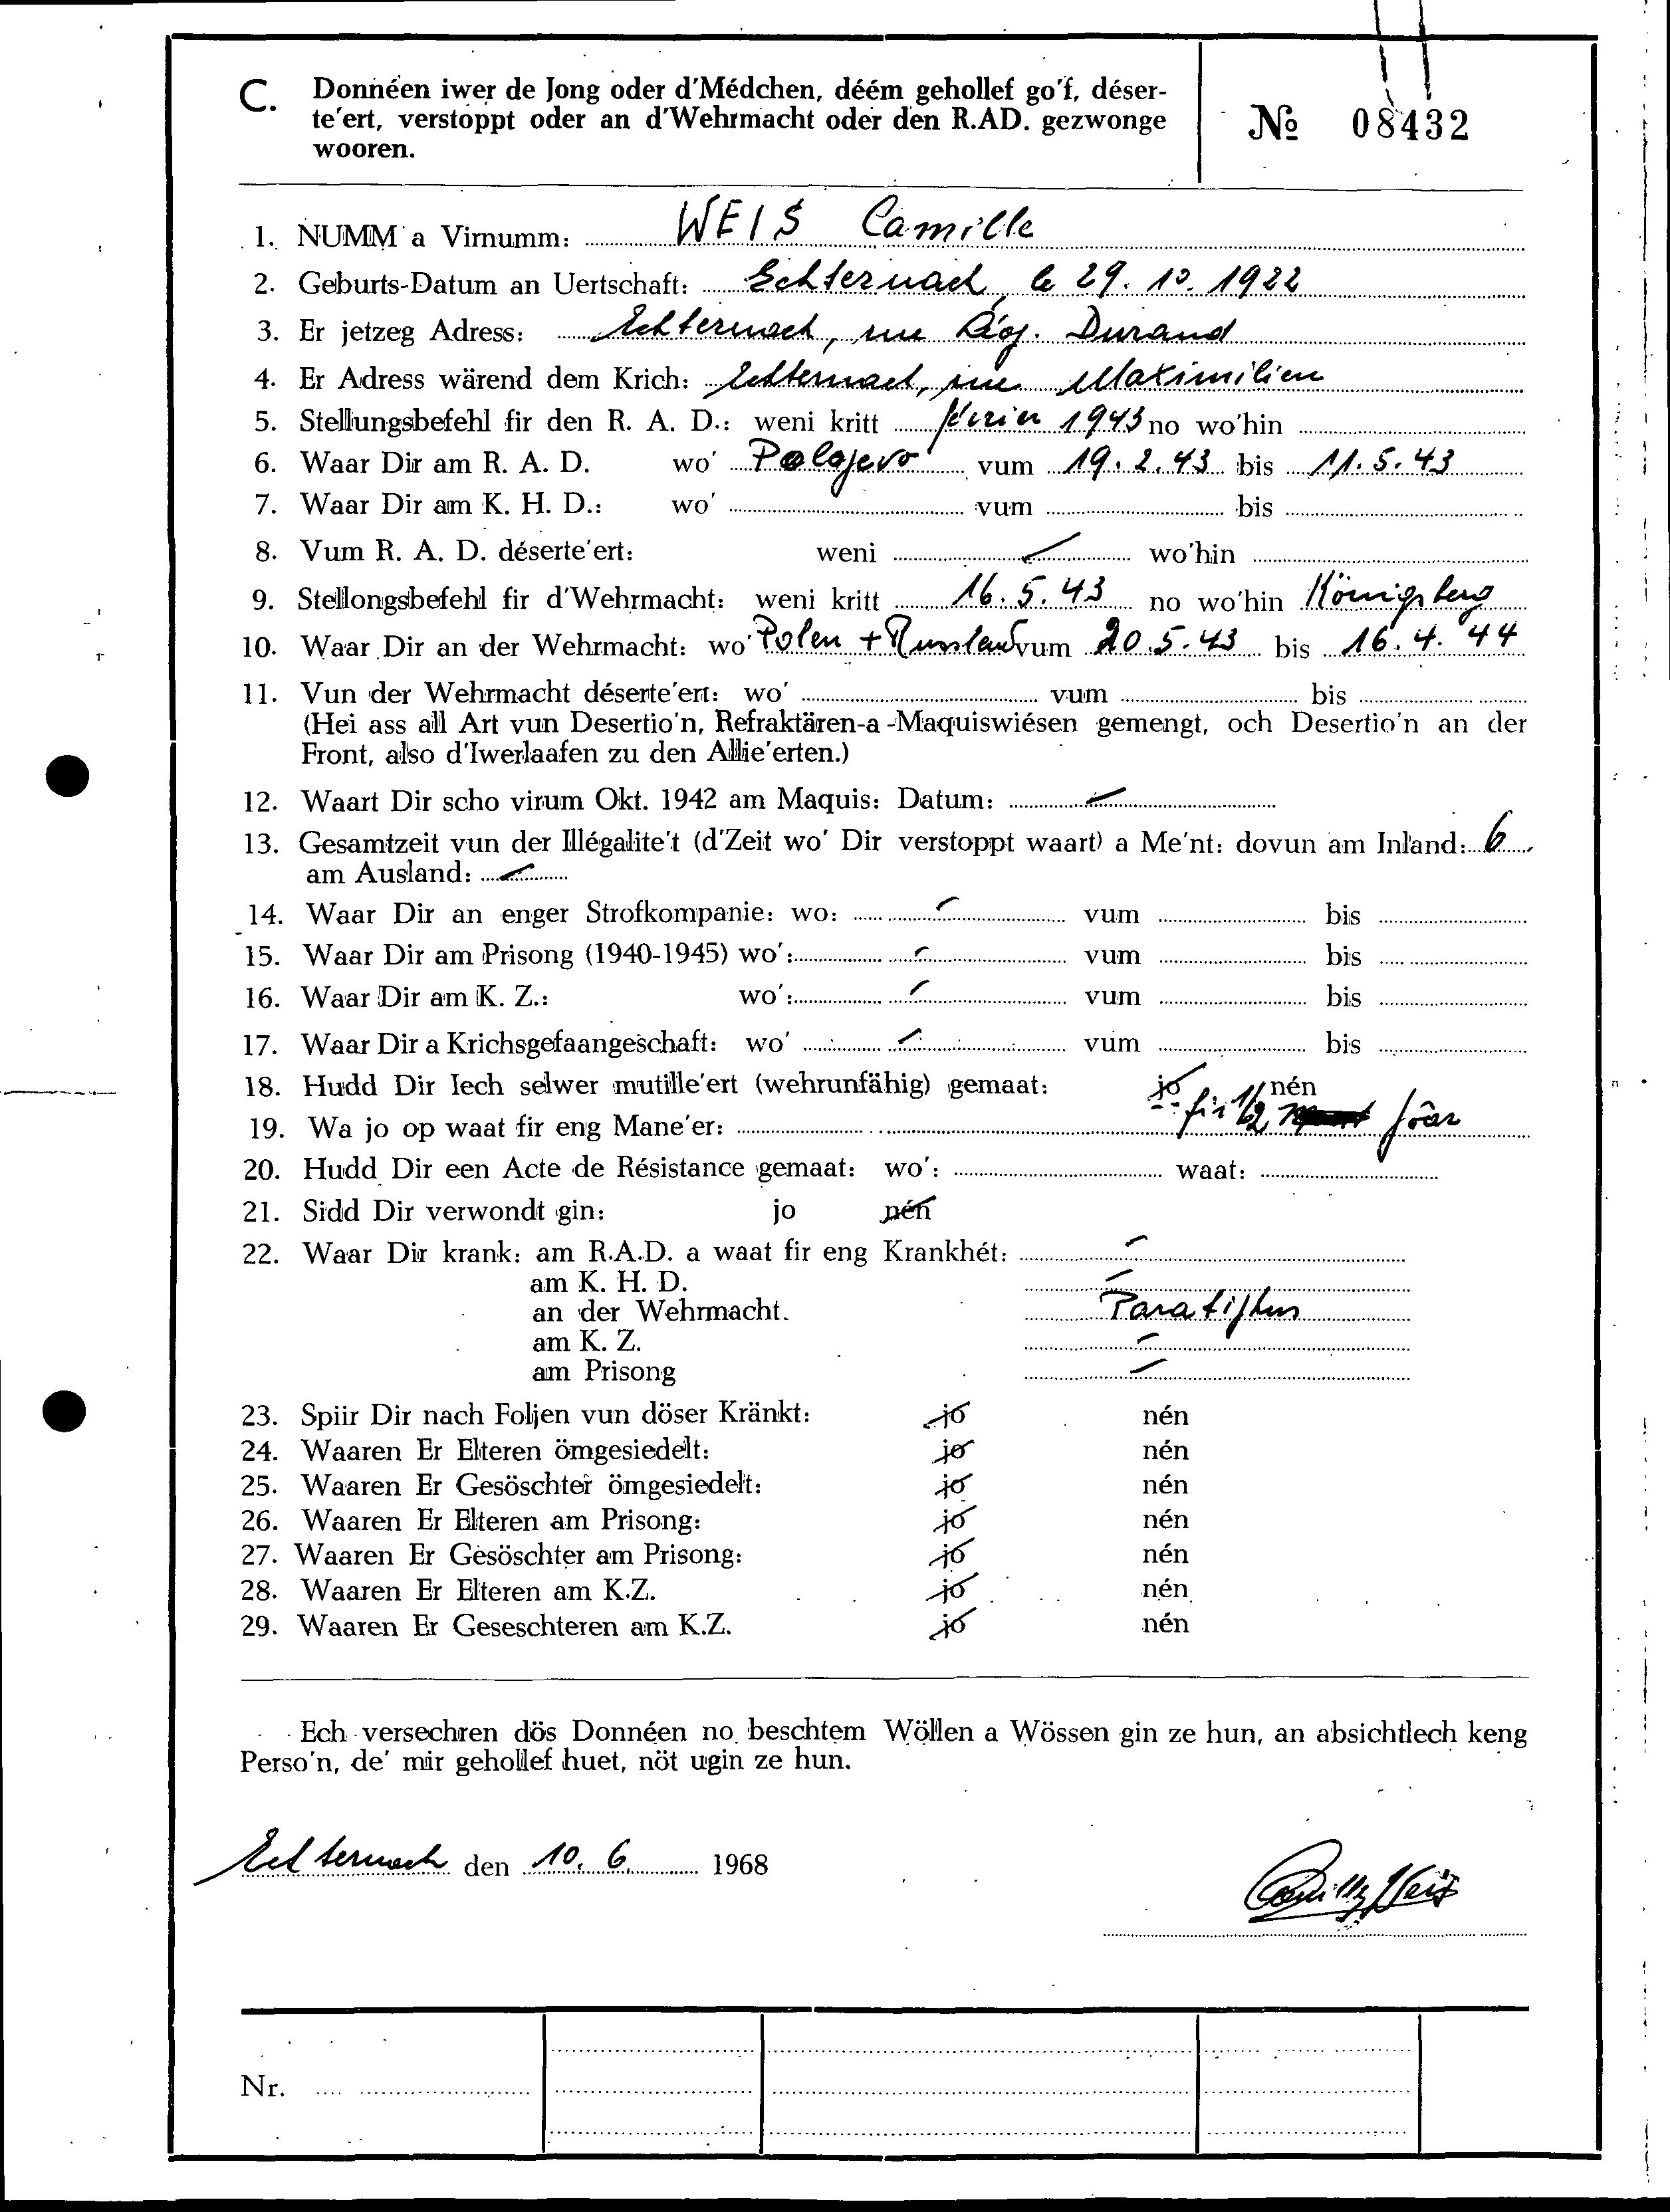 C. Donnéen iwer de Jong oder d'Médchen, déém gehollef go'f, déser-
te'ert, verstoppt oder an d'Wehrmacht oder den R.AD. gezwonge
wooren.
№ 08432
1. NUMM a Virnumm: WEIS Camille
2. Geburts-Datum an Uertschaft: Echternach, le 29. 10. 1922
3. Er jetzeg Adress: Echternach, rue Rég. Durand
4. Er Adress wärend dem Krich: Echternach, rue Maximilien
5. Stellungsbefehl fir den R. A. D.: weni kritt février 1943 no wo'hin
6. Waar Dir am R. A. D. wo' Polajevo vum 19. 2. 43 bis 11. 5. 43
7. Waar Dir am K. H. D.: wo' vum bis
8. Vum R. A. D. déserte'ert: weni wo'hin
9. Stellongsbefehl fir d'Wehrmacht: weni kritt 16. 5. 43 no wo'hin Königsberg
10. Waar Dir an der Wehrmacht: wo' Polen + Russland vum 20. 5. 43 bis 16. 4. 44
11. Vun der Wehrmacht déserte'ert: wo' vum bis
(Hei ass all Art vun Desertio'n, Refraktären-a-Maquiswiésen gemengt, och Desertio'n an der
Front, also d'Iwerlaafen zu den Allie'erten.)
12. Waart Dir scho virum Okt. 1942 am Maquis: Datum:
13. Gesamtzeit vun der Illégalite't (d'Zeit wo' Dir verstoppt waart) a Me'nt: dovun am Inland: 6
am Ausland:
14. Waar Dir an enger Strofkompanie: wo: vum bis
15. Waar Dir am Prisong (1940-1945) wo': vum bis
16. Waar Dir am K. Z.: wo': vum bis
17. Waar Dir a Krichsgefaangeschaft: wo' vum bis
18. Hudd Dir Iech selwer mutille'ert (wehrunfähig) gemaat: jo nén
19. Wa jo op waat fir eng Mane'er: fir 1/2 Joar
20. Hudd Dir een Acte de Résistance gemaat: wo': waat:
21. Sidd Dir verwondt gin: jo nén
22. Waar Dir krank: am R.A.D. a waat fir eng Krankhét:
am K. H. D.
an der Wehrmacht. Paratiphus
am K. Z.
am Prisong
23. Spiir Dir nach Foljen vun döser Kränkt: jo nén
24. Waaren Er Elteren ömgesiedelt: jo nén
25. Waaren Er Gesöschter ömgesiedelt: jo nén
26. Waaren Er Elteren am Prisong: jo nén
27. Waaren Er Gesöschter am Prisong: jo nén
28. Waaren Er Elteren am K.Z. jo nén
29. Waaren Er Geseschteren am K.Z. jo nén
Ech versechren dös Donnéen no beschtem Wöllen a Wössen gin ze hun, an absichtlech keng
Perso'n, de' mir gehollef huet, nöt ugin ze hun.
Echternach den 10. 6. 1968
Camille Weis
Nr.